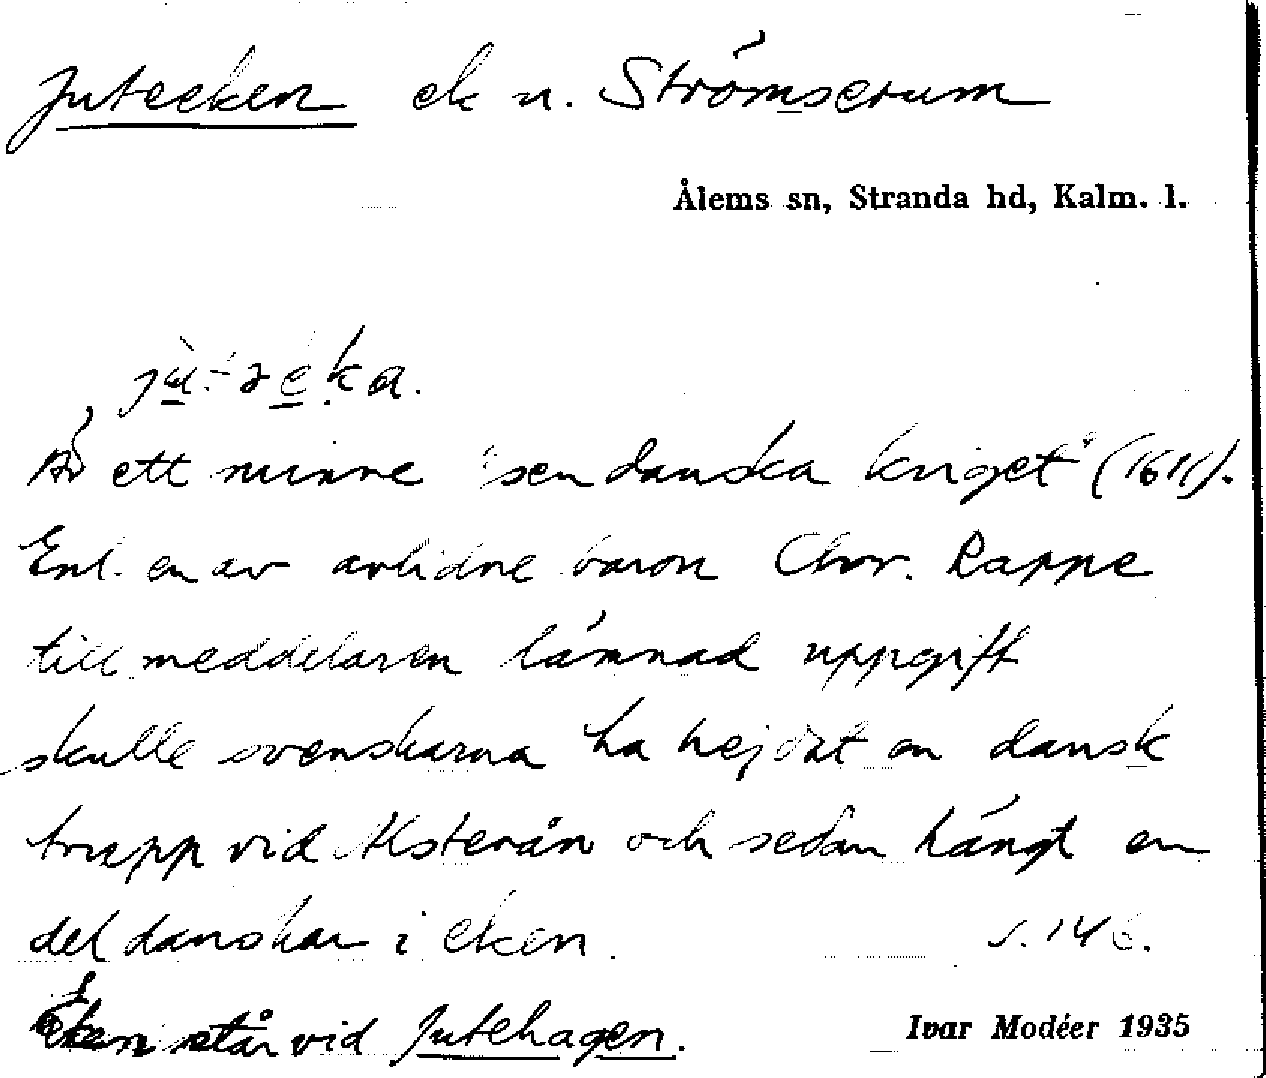 Juteeken ek n. Strömserum
Ålems sn, Stranda hd, Kalm. l.
Är ett minne "sen danska kriget" (1611).
Enl. en av avlidne baron Chr. Rappe
till meddelaren lämnad uppgift
skulle svenskarna ha hejdat en dansk
trupp vid Alsterån och sedan hängt en
del danskar i eken. s. 146.
Eken står vid Jutehagen.
Ivar Modéer 1935